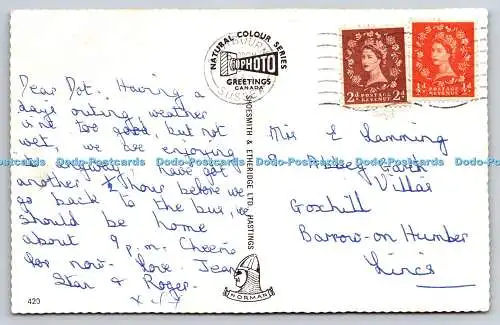 Dear Dot. Having a
days outing, weather
is not too good, but not
wet, we are enjoying
it anyway, have got
another ½ hour before we
go back to the bus, we
should be home
about 9 p.m. Cheerio
for now. love Jean
Stan & Roger.
x x x
420
NATURAL COLOUR SERIES
PHOTO
GREETINGS
CANADA
SHOESMITH & ETHERIDGE LTD. HASTINGS
NORMAN
2d POSTAGE REVENUE 2d
½d POSTAGE REVENUE ½d
Mis E Lamming
Abbey Garth
Villas
Goxhill
Barrow-on Humber
Lincs
Dodo-Postcards Dodo-Postcards Dodo-Postcards Dodo-Postcards Dodo-Postcards Dodo-Postcards